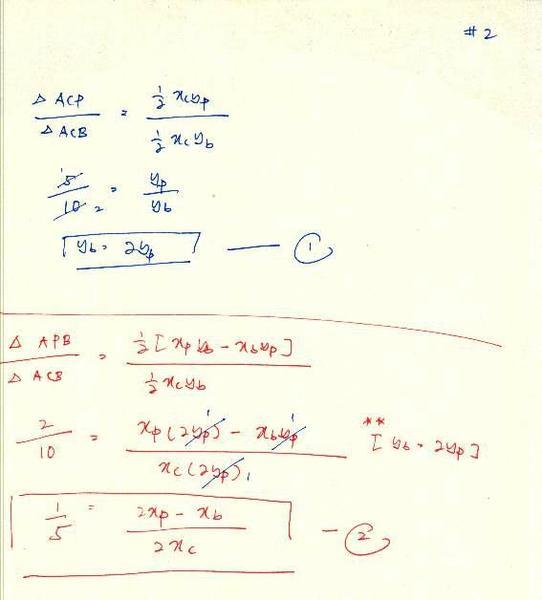 # 2
△ ACP / △ ACB = ½ x_c y_p / ½ x_c y_b
5 / 10 2 = y_p / y_b
y_b = 2y_p — ①
△ APB / △ ACB = ½ [ x_p y_b - x_b y_p ] / ½ x_c y_b
2 / 10 = x_p (2y_p) 1 - x_b y_p 1 / x_c (2y_p) 1 ** [ y_b = 2y_p ]
1 / 5 = 2x_p - x_b / 2x_c — ②